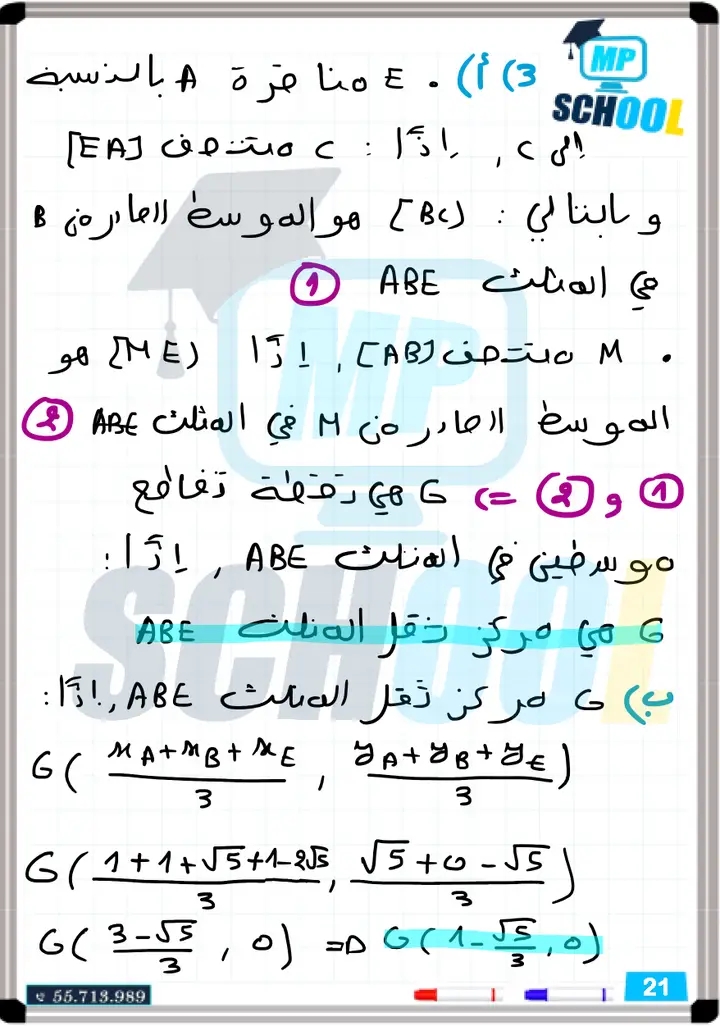 MP
SCHOOL
3) أ) • E مناظرة A بالنسبة
إلى C ، إذًا : C منتصف [EA]
وبالتالي : [BC) هو الموسط الصادر من B
في المثلث ABE ①
• M منتصف [AB] ، إذًا [ME) هو
الموسط الصادر من M في المثلث ABE ②
① و ② => G هي نقطة تقاطع
موسطين في المثلث ABE ، إذًا :
G هي مركز ثقل المثلث ABE
ب) G مركز ثقل المثلث ABE ، إذًا :
G( (x_A+x_B+x_E)/3 , (y_A+y_B+y_E)/3 )
G( (1+1+√5+1-2√5)/3 , (√5+0-√5)/3 )
G( (3-√5)/3 , 0) => G(1-√5/3 , 0)
55.713.989
21